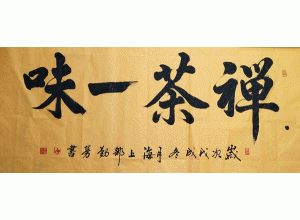 禅茶一味
歲次戊戌冬月海上鄒勤勞書